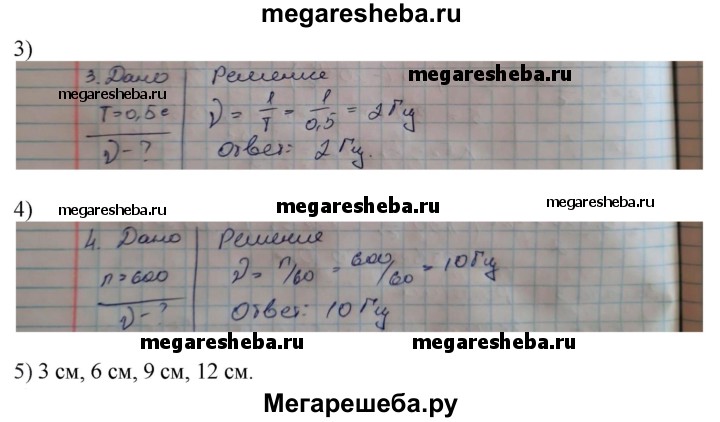 megaresheba.ru
3)
3. Дано Решение megaresheba.ru
megaresheba.ru
T=0,5с ν = 1/T = 1/0,5 = 2 Гц
ν - ? Ответ: 2 Гц.
4) megaresheba.ru megaresheba.ru megaresheba.ru
4. Дано Решение
n=600 ν = n/60 = 600/60 = 10 Гц
ν - ? Ответ: 10 Гц
megaresheba.ru megaresheba.ru
5) 3 см, 6 см, 9 см, 12 см.
Мегарешеба.ру